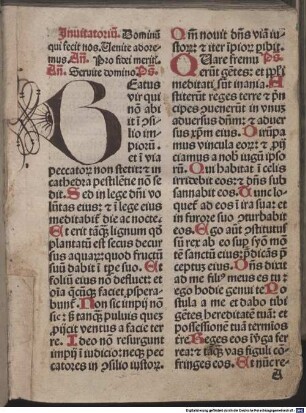 Inuitatoriū. Dominū
qui fecit nos. Uenite adore-
mus. Añ. Pro fidei merit.
Añ. Seruite domino. Ps.
BEatus
vir qui
nō abi
it ī ꝯsi
lio im
pioꝝ.
et ī via
peccatoꝝ non stetit: et in
cathedra pestilētie nō se
dit. Sed in lege dñi vo
lūtas eius: et ī lege eius
meditabiť die ac nocte.
Et erit tāqꝫ lignum qď
plantatū est secus decur
sus aquaꝝ: quod fructū
suū dabit ī tꝑe suo. Et
foliū eius nō defluet: et
oīa q̄cūqꝫ faciet ꝓspera
bunť. Non sic impij nō
sic: sꝫ tanqꝫ puluis quez
ꝓijcit ventus a facie ter
re. Ideo nō resurgunt
impij ī iudicio: neqꝫ pec
catores in ꝯsilio iustoꝝ.
Qm̄ nouit dñs viā iu
stoꝝ: et iter īpioꝝ ꝑibit.
QUare fremu Ps.
erūt gētes: et ppl'i
meditati sūt inania. A
stiterūt reges terre et pͥn
cipes ꝯuenerūt in vnuꝫ
aduersus dñm: et aduer
sus xp̄m eius. Dirūpa
mus vincula eoꝝ: et ꝓij
ciamus a nob iugū ipso
rū. Qui habitat ī celis
irridebit eos: et dñs sub
sannabit eos. Tunc loque
ť ad eos ī ira sua: et
in furore suo ꝯturbabit
eos. Ego aūt ꝯstitutꝰ
sū rex ab eo suꝑ syō mō
tē sanctū eius: p̄dicās p̄
ceptuꝫ eius. Dñs dixit
ad me filiꝰ meus es tu:
ego hodie genui te. Po
stula a me et dabo tibi
gētes hereditatē tuā: et
possessionē tuā termios
tr̄e. Reges eos ī v̄ga fer
rea: et tāqꝫ vas figuli cō
fringes eos. Et nūc re-
A